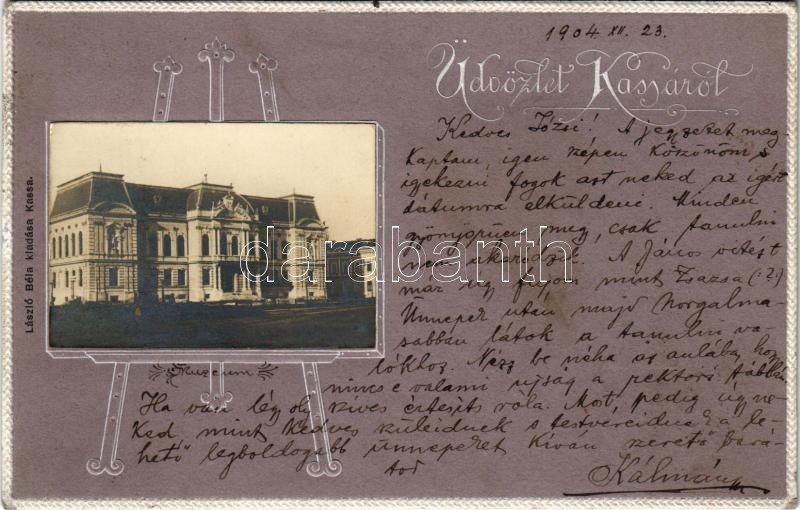 1904 XII. 23.
Üdvözlet Kassáról
László Béla kiadása Kassa.
Muzeum
darabanth
Kedves Józsi! A jegyzetet meg-
kaptam, igen szépen köszönöm s
igekezni fogok azt neked az igért
dátumra elküldeni. Minden
meg, csak tanulni
nem akarodzik. A János vitézt
már úgy fujom mint Zsazsa (:?:)
Ünnepek után majd szorgalma-
sabban látok a tanulni va-
lókhoz. Nézz be néha az aulába, hogy
nincs e valami ujság a rektori táblán
Ha van légy oly szíves értesíts róla. Most, pedig úgy ne-
ked mint kedves szüleidnek s testvéreidnek a le-
hető legboldogabb ünnepeket kíván szerető bará-
tod
Kálmán